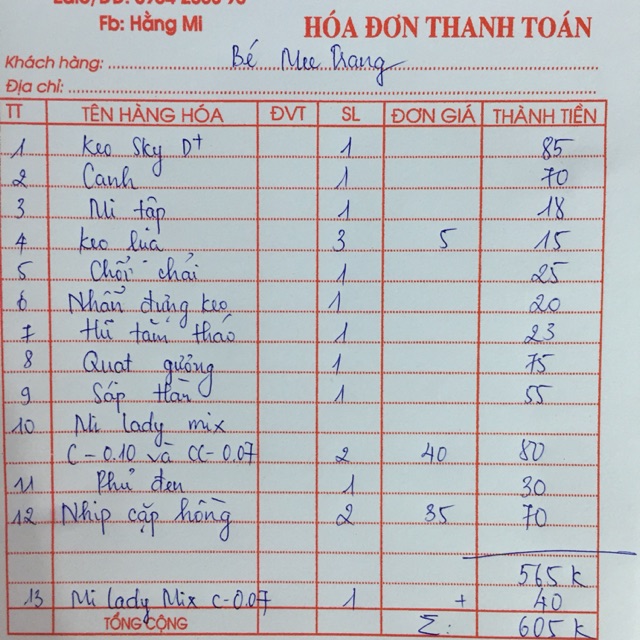 Fb: Hằng Mi
HÓA ĐƠN THANH TOÁN
Khách hàng: Bé Mee Trang
Địa chỉ:
TT TÊN HÀNG HÓA ĐVT SL ĐƠN GIÁ THÀNH TIỀN
1 Keo Sky D+ 1 85
2 Canh 1 70
3 Mi tập 1 18
4 Keo lúa 3 5 15
5 Chổi chải 1 25
6 Nhẫn đựng keo 1 20
7 Hũ tăm tháo 1 23
8 Quạt gương 1 75
9 Sáp Hàn 1 55
10 Mi lady mix
C-0.10 và CC-0.07 2 40 80
11 Phủ đen 1 30
12 Nhíp cặp hồng 2 35 70
565 K
13 Mi lady Mix C-0.07 1 + 40
TỔNG CỘNG Σ: 605 K